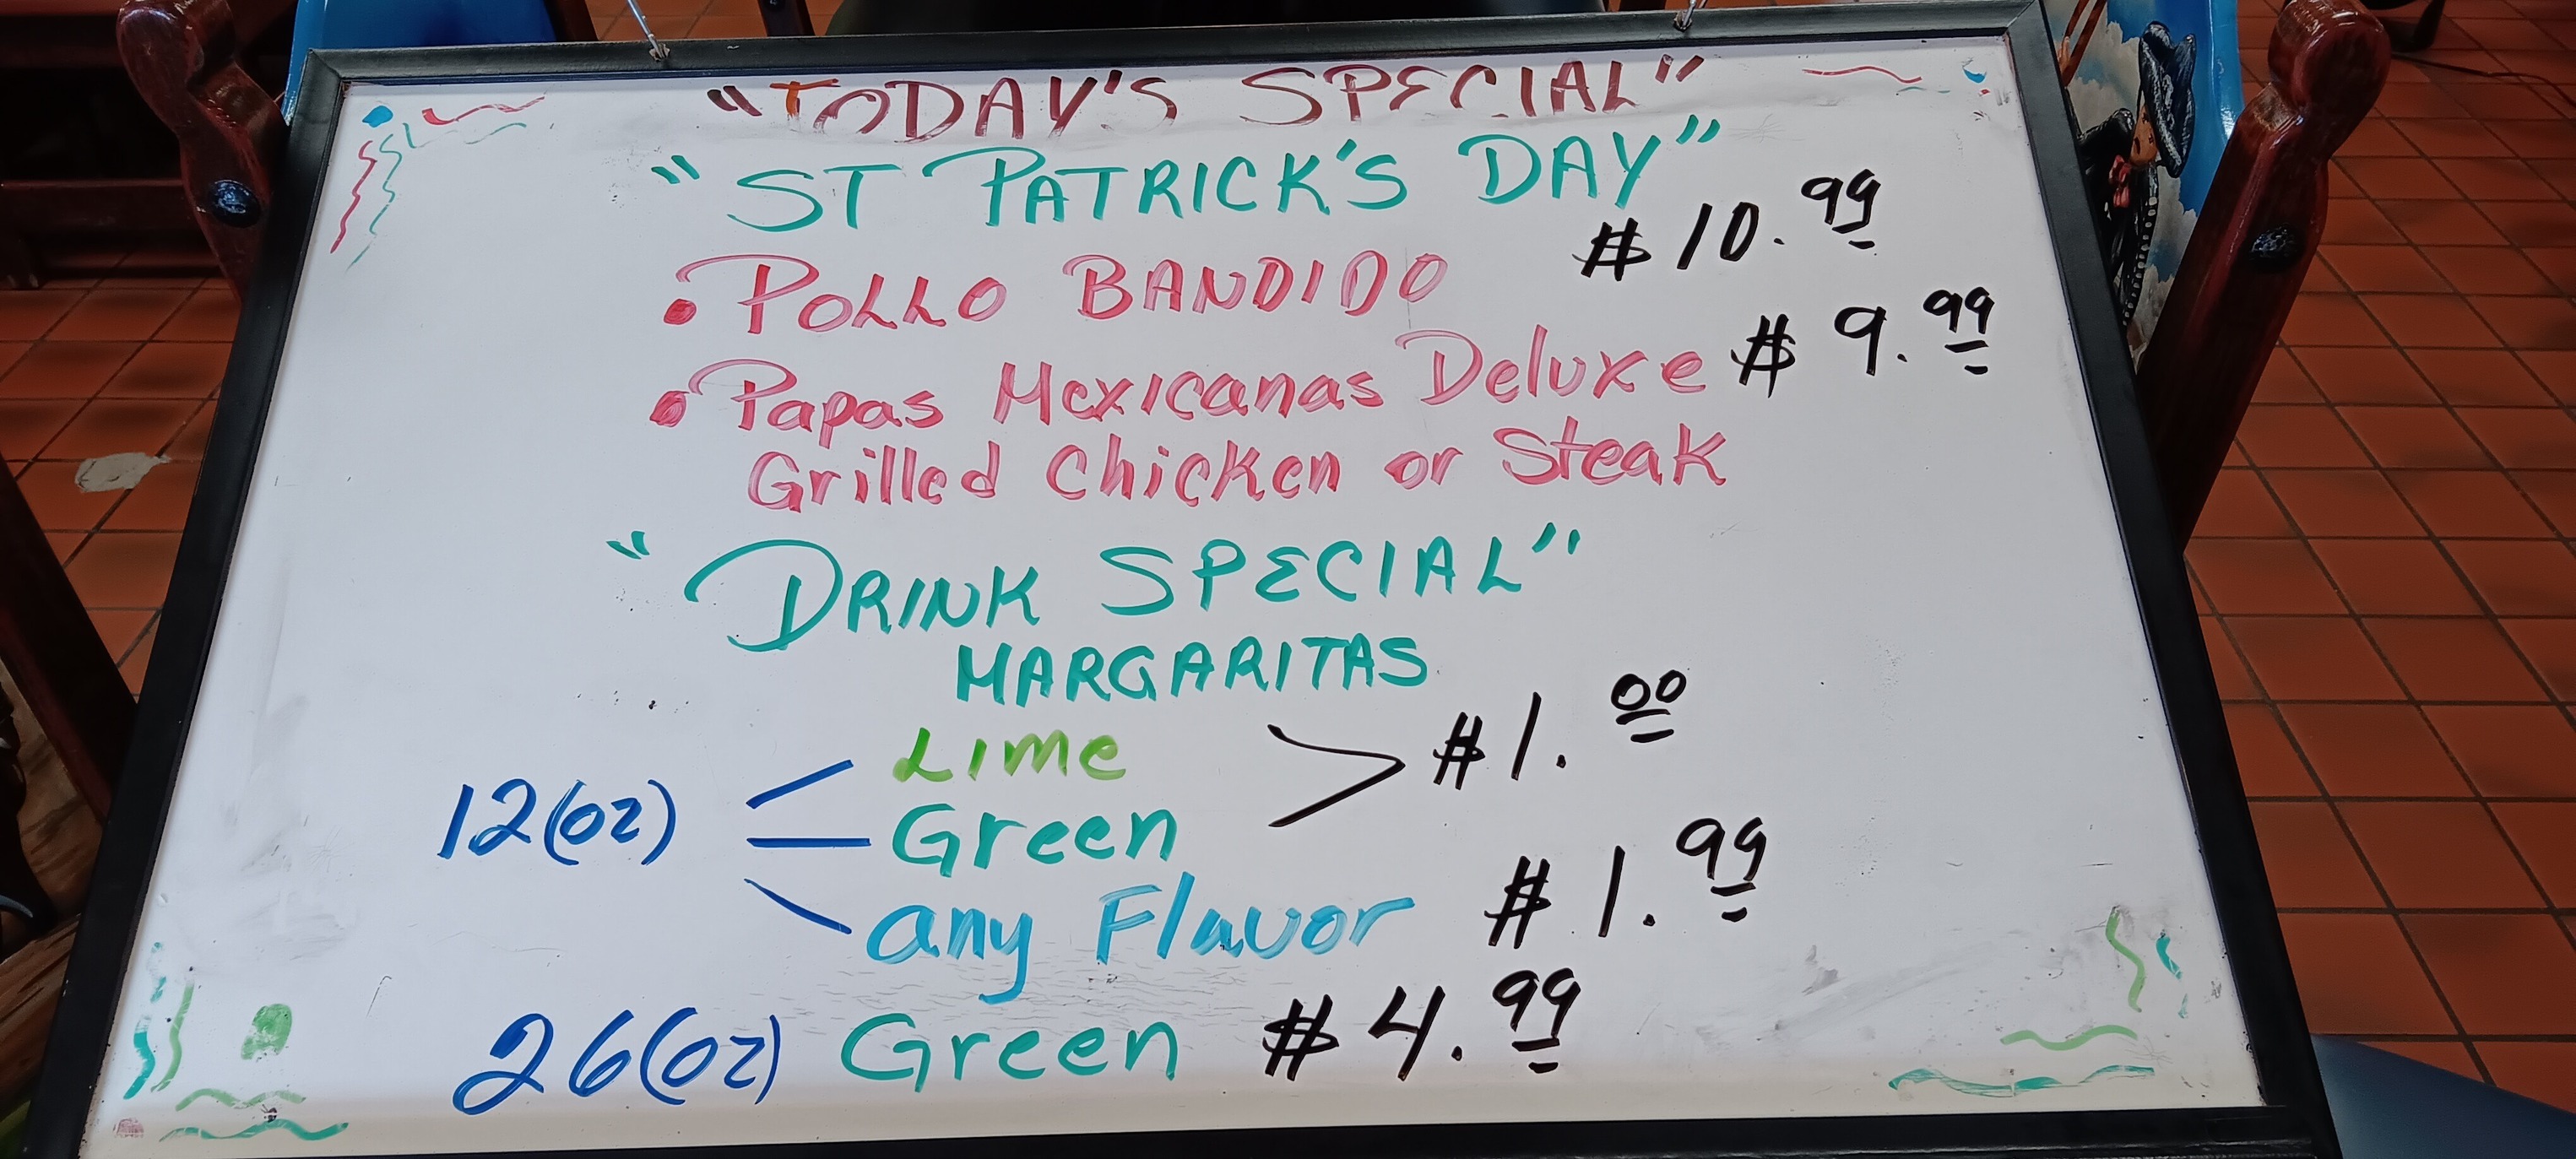 "TODAY'S SPECIAL"
"ST PATRICK'S DAY"
• POLLO BANDIDO $10.99
• Papas Mexicanas Deluxe $9.99
Grilled Chicken or Steak
"DRINK SPECIAL"
MARGARITAS
12(oz)
Lime
Green
$1.00
any Flavor $1.99
26(oz) Green $4.99